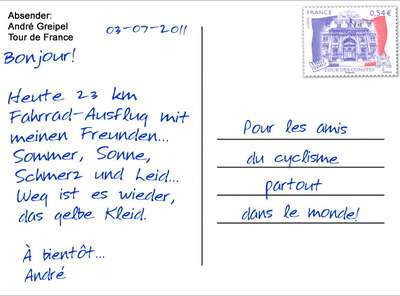 Absender:
André Greipel
Tour de France
03-07-2011
Bonjour!
Heute 23 km
Fahrrad-Ausflug mit
meinen Freunden...
Sommer, Sonne,
Schmerz und Leid...
Weg ist es wieder,
das gelbe Kleid.
À bientôt...
André
FRANCE
0,54 €
COUR DES COMPTES
Pour les amis
du cyclisme
partout
dans le monde!